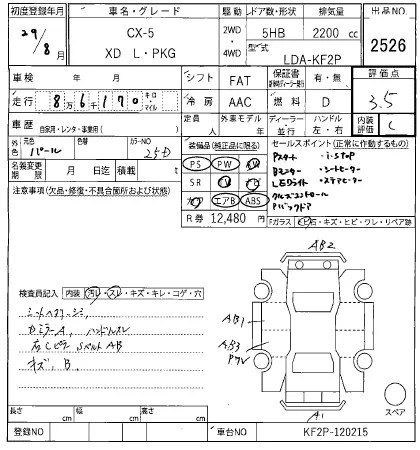 初度登録年月 車名・グレード 駆動 ドア数・形状 排気量 出品NO
29/8月 CX-5 2WD・4WD 5HB 2200 cc 2526
XD L・PKG 型式 LDA-KF2P
車検 年 月 シフト FAT 保証書 有・無 評価点
走行 86170 キロ・マイル 冷房 AAC 燃料 D 3.5
車歴 自家用・レンタ・事業用( ) 定員 人 外車モデル 年 ディーラー 並行 ハンドル 左・右 内装 C
外色 元色 パール 色替 カラーNO 25D
装備品(純正品に限る) セールスポイント(正常に作動するもの)
名義変更期限 月 日迄 積載 t
PS PW AW
SR
エアB ABS
R券 12,480 円
Pスタート ・i-stop
Bモニター ・シートヒーター
LEDライト ・ステアヒーター
クルーズコントロール
Pバックドア
注意事項(欠品・修復・不具合箇所および状態)
Fガラス 石・キズ・ヒビ・ワレ・リペア跡
検査員記入 内装 汚レ・スレ・キズ・キレ・コゲ・穴
AB2
AB1
AB3
A1
キズ、B
スペア
長さ cm 幅 cm 高さ cm
登録NO 車台NO KF2P-120215